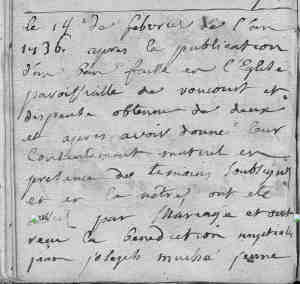 le 14 de febvrier de l'an
1736. apres la publication
d'un ban faitte en l'Eglise
paroissialle de voncourt et
dispense obtenue de deux
et apres avoir donné leur
Consentement mutuel en
presence des temoins soubsignes
et en la notre, ont ete
par Mariage et ont
reçu la benediction nuptiale
jean joseph muché jeune